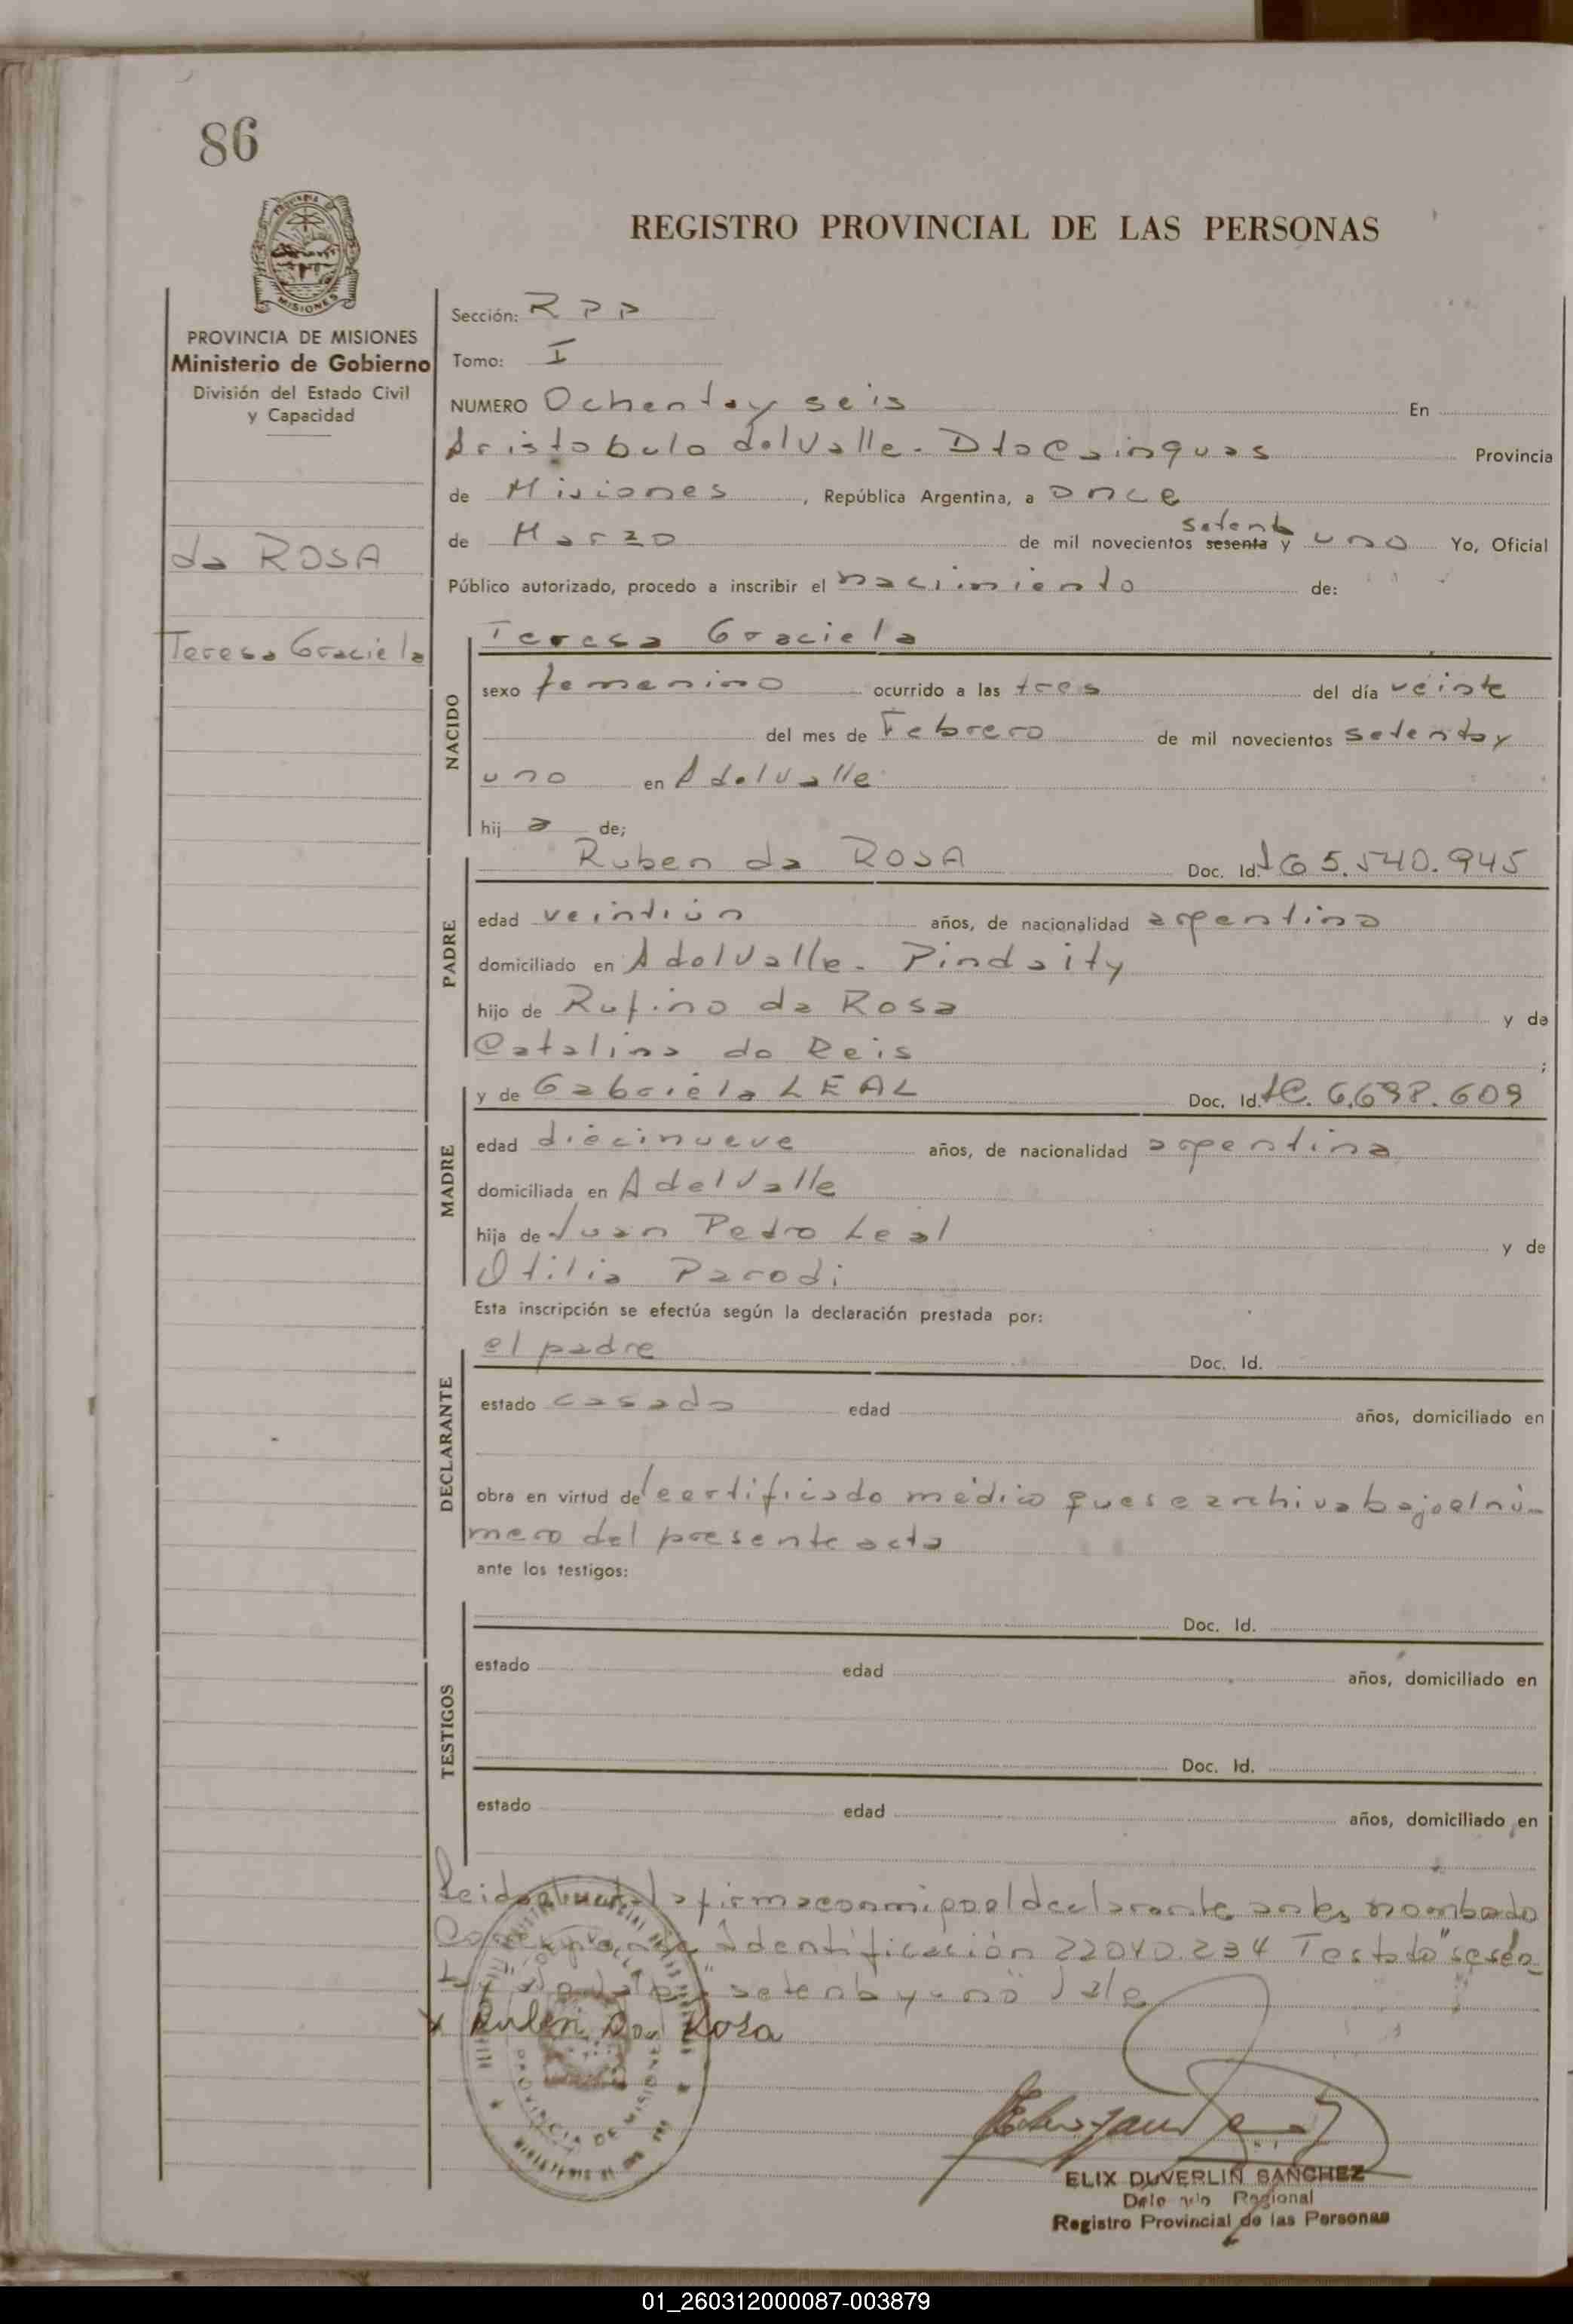 86
PROVINCIA DE MISIONES
Ministerio de Gobierno
División del Estado Civil
y Capacidad
da ROSA
Teresa Graciela
REGISTRO PROVINCIAL DE LAS PERSONAS
Sección: RPP
Tomo: I
NUMERO Ochenta y seis En
Aristobulo del Valle. Dto Cainguas Provincia
de Misiones, República Argentina, a once
setenta
de Marzo de mil novecientos sesenta y uno Yo, Oficial
Público autorizado, procedo a inscribir el nacimiento de:
NACIDO
Teresa Graciela
sexo femenino ocurrido a las tres del día veinte
del mes de Febrero de mil novecientos setenta y
uno en A del Valle
hij a de;
PADRE
Ruben da ROSA Doc. Id. 5.540.945
edad veintiún años, de nacionalidad argentina
domiciliado en A del Valle. Pindaity
hijo de Rufino da Rosa y de
Catalina do Reis ;
MADRE
y de Gabriela LEAL Doc. Id. LC. 6.698.609
edad diecinueve años, de nacionalidad argentina
domiciliada en A del Valle
hija de Juan Pedro Leal y de
Otilia Parodi
Esta inscripción se efectúa según la declaración prestada por:
DECLARANTE
el padre Doc. Id.
estado casado edad años, domiciliado en
obra en virtud del certificado médico que se archiva bajo el nú-
mero del presente acta
ante los testigos:
TESTIGOS
Doc. Id.
estado edad años, domiciliado en
Doc. Id.
estado edad años, domiciliado en
Leida el acta la firma conmigo el declarante antes nombado
Identificación 22040.234 Testado "sesen-
ta y setenta y uno" Vale
x Ruben Da Rosa
PROVINCIA DE MISIONES
ELIX DUVERLIN SANCHEZ
Delegado Regional
Registro Provincial de las Personas
01_260312000087-003879